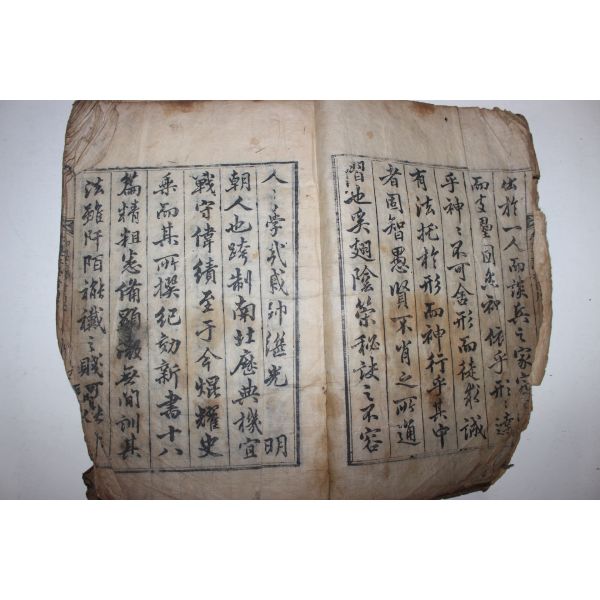 出於一人而談兵之家
固然神依乎形達
乎神〻不可舍形而徒求誠
有法托於形而神行乎其中
者固智愚賢不肖之所通
習也奚翅陰策秘訣之不容
人〻學武戚帥繼光 明
朝人也跨制南北應典機宜
戰守偉績至于今焜耀史
乘而其所撰紀効新書十八
篇精粗悉備顯微無間訓其
法雖阡陌之賤可